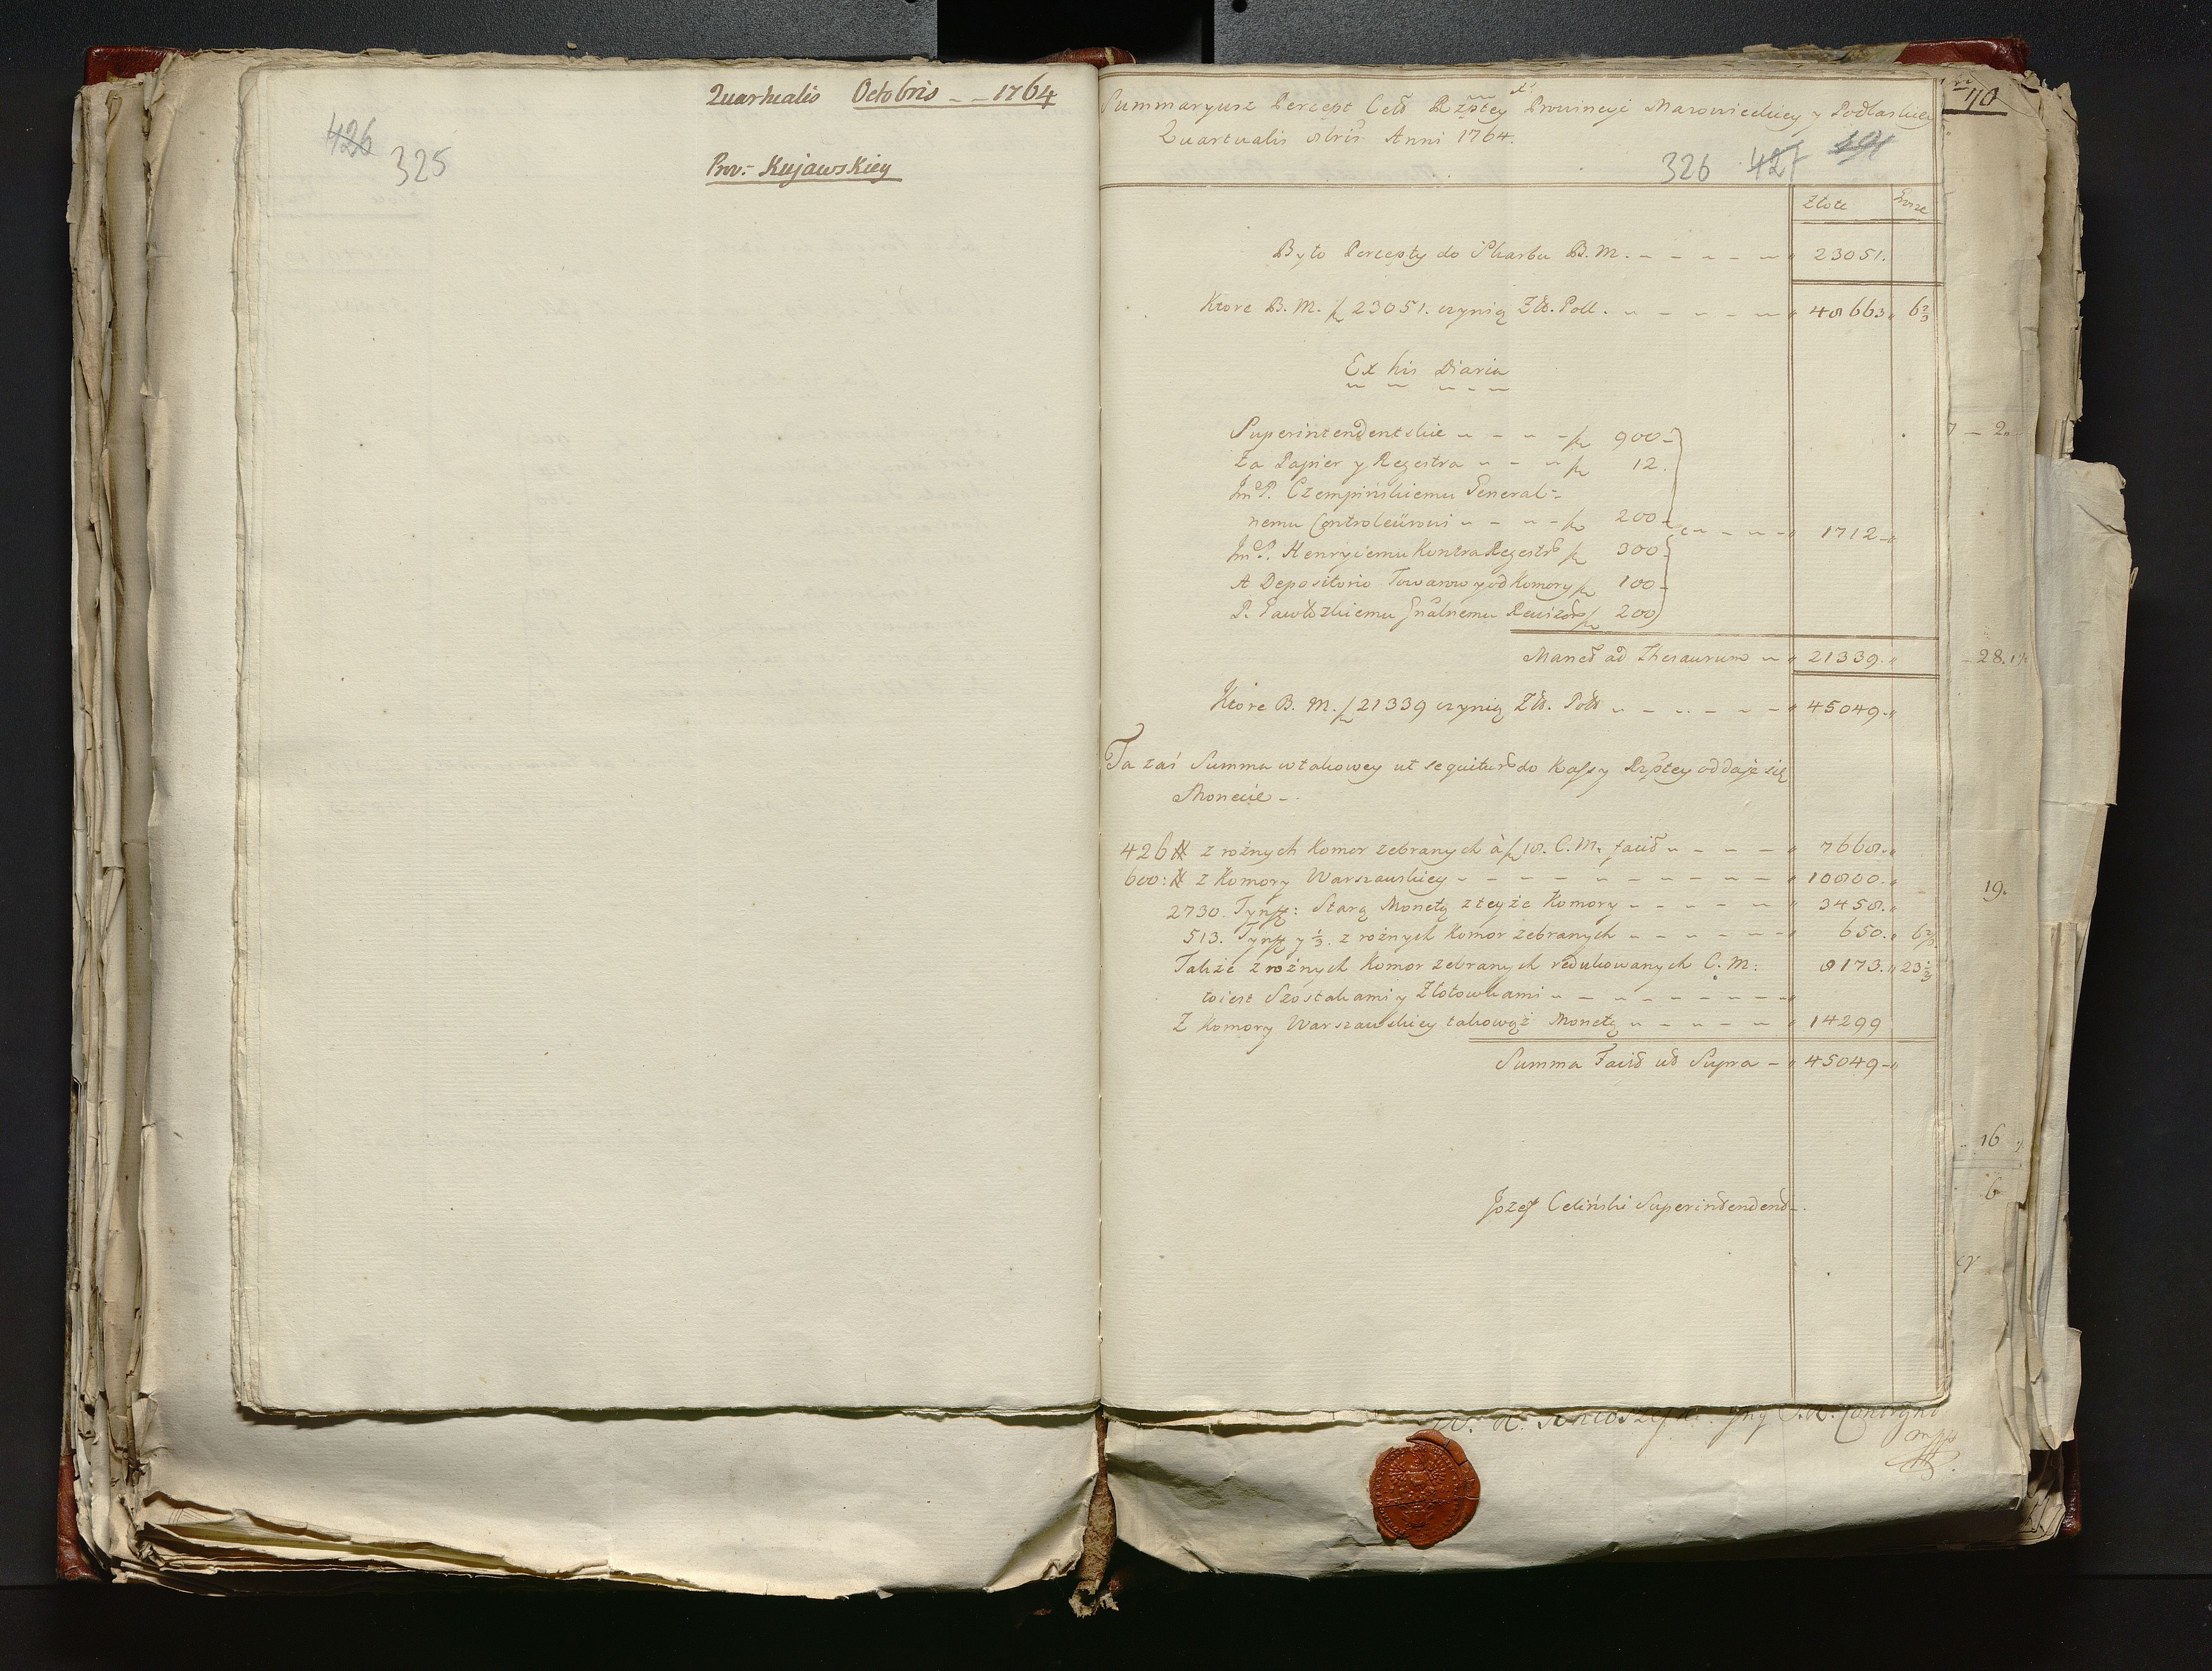 Quartualis Octobris _ _ 1764
426 325
Prov:- Kujawskiey
Summaryusz Percept Ceł Rzptey Prowincyi Mazowieckiey y Podlaskiey
Quartualis 8bris Anni 1764.
326 427 491
Złote Grosze
Było Percepty do Skarbu B. M. 23051.
Ktore B. M. 23051. czynią Zł. Poll. 48663 6 2/3
Ex his Diaria
Superintendentskie 900
Za Papier y Regestra 12.
JmP. Czempińskiemu General=
nemu Controleürowi 200
JmP. Henryciemu KontraRegestr 300 1712
A Depositorio Towarow y od Komory 100
P. Pawłozkiemu Gnalnemu Rewizor 200
Manet ad Thesaurum 21339.
Ktore B. M. 21339 czynią Zł. Poll 45049.
Ta zaś Summa w takowey ut sequitur do Kassy Rzptey oddaje się
Monecie -.
426 # z rożnych Komor zebranych à 18. C. M. facit 7668.
600: # z Komory Warszawskiey 10800.
2730. Tynff: Starą Monetą z teyże Komory 3458.
513. Tynff y 1/3. z rożnych Komor zebranych 650. 6 2/3
Także z rożnych Komor zebranych redukowanych C. M: 8173. 23 1/3
to iest Szostakami y Złotowkami
Z Komory Warszawskiey takowąż Monetą 14299
Summa Facit ut Supra 45049
Jozef Celiński Superintendent.
70
28.
19.
16
6
mpp